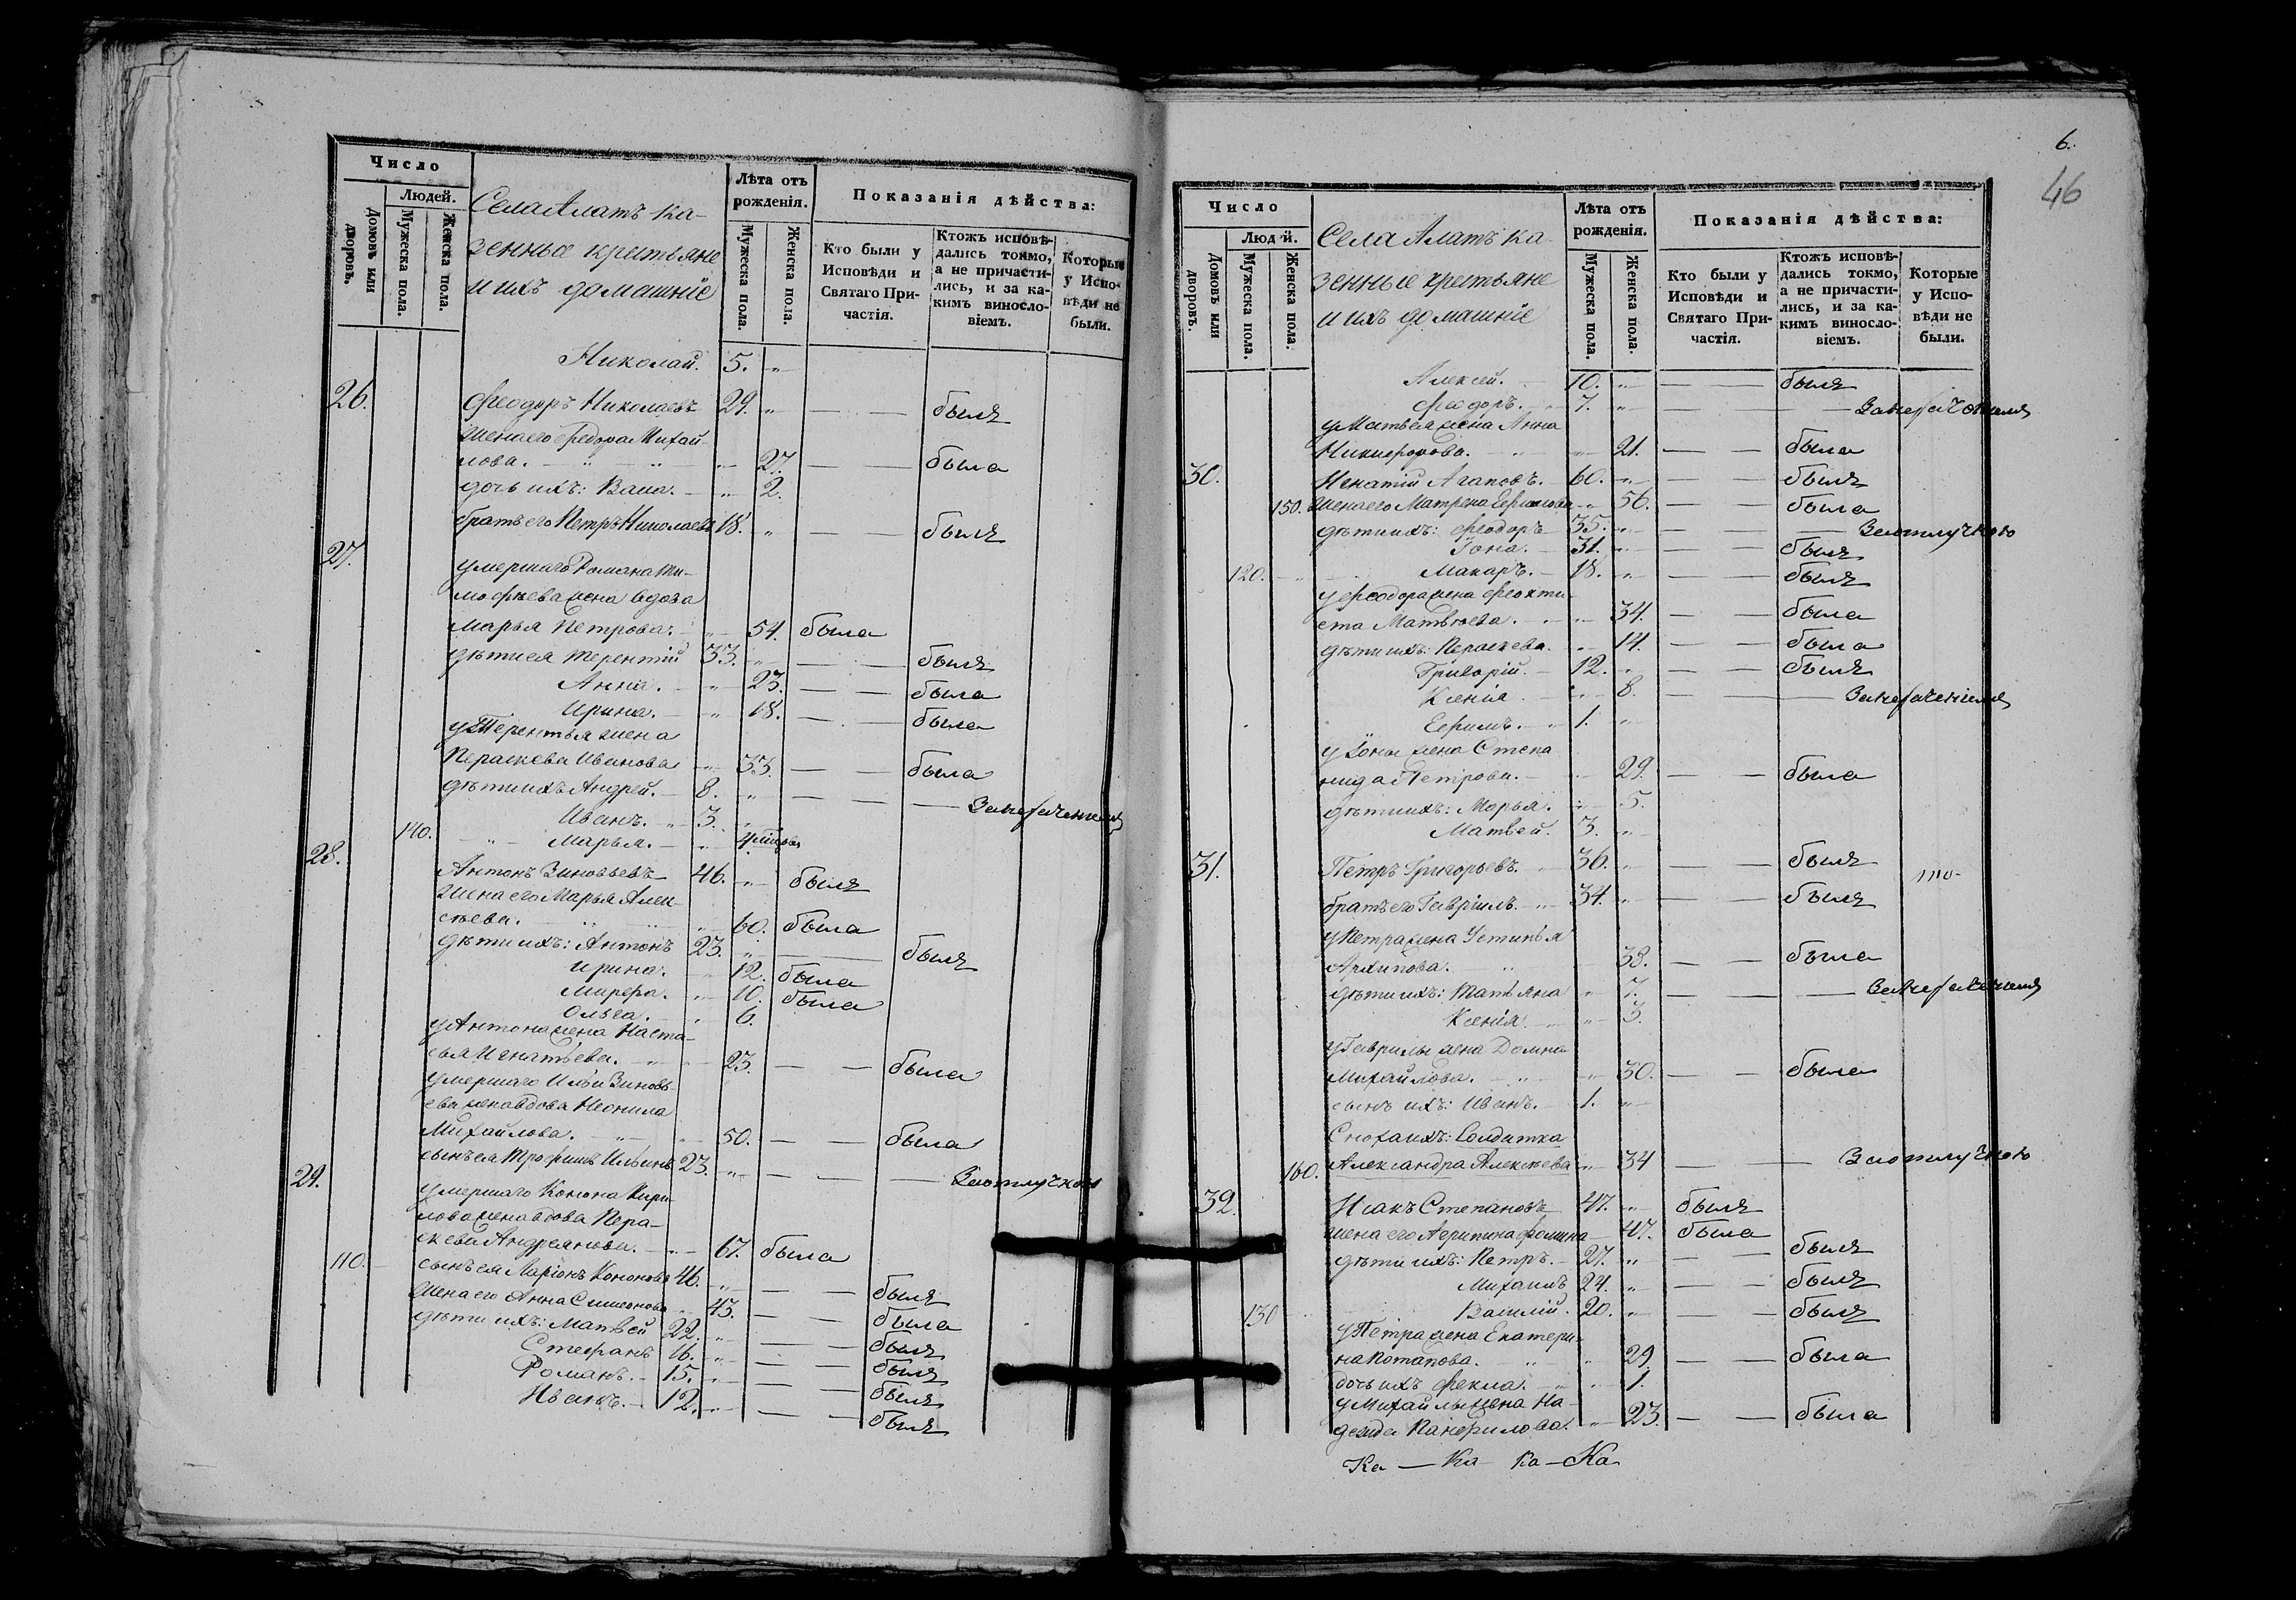 Число
Людей.
Домовъ или дворовъ.
Мужеска пола.
Женска пола.
Села Алатъ ка-
зенные крестьяне
и ихъ домашніе
Лѣта отъ рожденія.
Мужеска пола.
Женска пола.
Показанія дѣйства:
Кто были у Исповѣди и Святаго При-частія.
Ктожъ исповѣ-дались токмо, а не причасти-лись, и за ка-кимъ винословіемъ.
Которые у Испо-вѣди не были.
Николай. 5. „
26. Ѳеодоръ Николаевъ 29. „ — — былъ
жена его Ѳедора Михай-
лова. „ „ „ 27. — — была
дочь ихъ: Васса. — „ 2.
братъ его Петръ Николаевъ 18. „ — — былъ
27. умершаго Романа Ти-
моѳѣева жена вдова
Марья Петрова. „ 54. была
дѣти ея Терентій 33. „ — — былъ
Анна. — „ 23. — — была
Ирина. — „ 18. — — была
у Терентья жена
Параскева Иванова „ 33. — — была
дѣти ихъ Андрей. — 8. „ — — — Замалолѣтствомъ
Иванъ. „ 3. „
140. „ Марья. — „
28. Антонъ Зиновьевъ 46. „ былъ
жена его Марья Алек-
сѣева. „ „ 60. была
дѣти ихъ: Антонъ 23. „ — былъ
Ирина. „ 12. была
Марѳа. „ 10. была
Ольга. — „ 6.
у Антона жена Наста-
сья Игнатьева. „ „ 23. — — была
умершаго Ильи Зиновь-
ева жена вдова Неонила
Михайлова. „ „ 50. — — была
сынъ ея Трофимъ Ильинъ 23. „ — — — Заотлучкою
29. умершаго Конона Кири-
лова жена вдова Пара-
скева Андреянова. — „ 67. была
110. сынъ ея Ларіонъ Кононовъ 46. „ — — былъ
жена его Анна Симеонова „ 43. — — была
дѣти ихъ: Матвей 22. „ — — былъ
Стефанъ 16. „ — — былъ
Романъ. — 15. „ — — былъ
Иванъ. — 12. „ — — былъ
6.
46
Число
Людей.
Домовъ или дворовъ.
Мужеска пола.
Женска пола.
Села Алатъ ка-
зенные крестьяне
и ихъ домашніе
Лѣта отъ рожденія.
Мужеска пола.
Женска пола.
Показанія дѣйства:
Кто были у Исповѣди и Святаго При-частія.
Ктожъ исповѣ-дались токмо, а не причасти-лись, и за ка-кимъ винословіемъ.
Которые у Испо-вѣди не были.
Алексей. 10. „ — — былъ
Ѳедоръ. „ 7. „ — — —
у Матвея жена Анна
Никифорова. „ „ 21. — — была
30. Игнатій Агаповъ. — 60. „ — — былъ
150. жена его Матрена Ефимова „ 56. — — была
дѣти ихъ: Ѳеодоръ 35. „ — — — Заотлучкою
Іона. — 31. „ — — былъ
120. Макаръ. — 18. „ — — былъ
у Ѳеодора жена Ѳеокти-
ста Матвѣева. „ „ 34. — — была
дѣти ихъ: Параскева. „ 14. — — была
Григорій. 12. „ — — былъ
Ксенія. „ 8. — — —
Ефимъ. „ 1. „
у Іоны жена Степа-
нида Петрова. — „ 29. — — была
дѣти ихъ: Марья. „ 5.
Матвей. 3. „
31. Петръ Григорьевъ. „ 36. „ — — былъ
братъ его Гавріилъ. „ 34. „ — — былъ
у Петра жена Устинья
Архипова. „ 38. — — была
дѣти ихъ: Татьяна „ 7. — — —
Ксенія. „ „ 3.
у Гаврилы жена Домна
Михайлова. „ „ 30. — — была
сынъ ихъ: Иванъ. — 1. „
Сноха ихъ: Солдатка
160. Александра Алексѣева „ 34 — — Заотлучкою
32. Исакъ Степановъ 47. „ былъ
жена его Агрипина Ѳомина 47. была
дѣти ихъ: Петръ. — 27. „ — — былъ
Михаилъ 24. „ — — былъ
130 Василій. 20. „ — — былъ
у Петра жена Екатери-
на Потапова. „ „ 29. — — была
дочь ихъ Ѳекла. „ „ 1.
у Михайлы жена На-
дежда Панфилова. „ 23. — — была
Ка — Ка — Ка — Ка